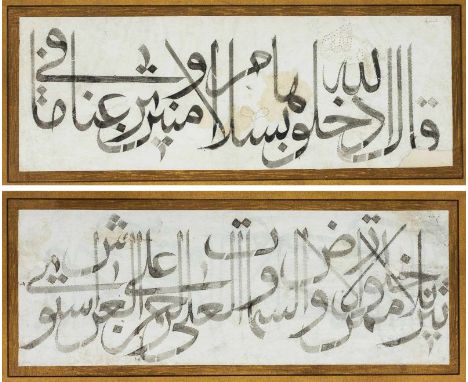 قال الله ادخلوها بسلام امنين ونزعنا ما في
تنزيلا ممن خلق الارض والسموات العلى الرحمن على العرش استوى